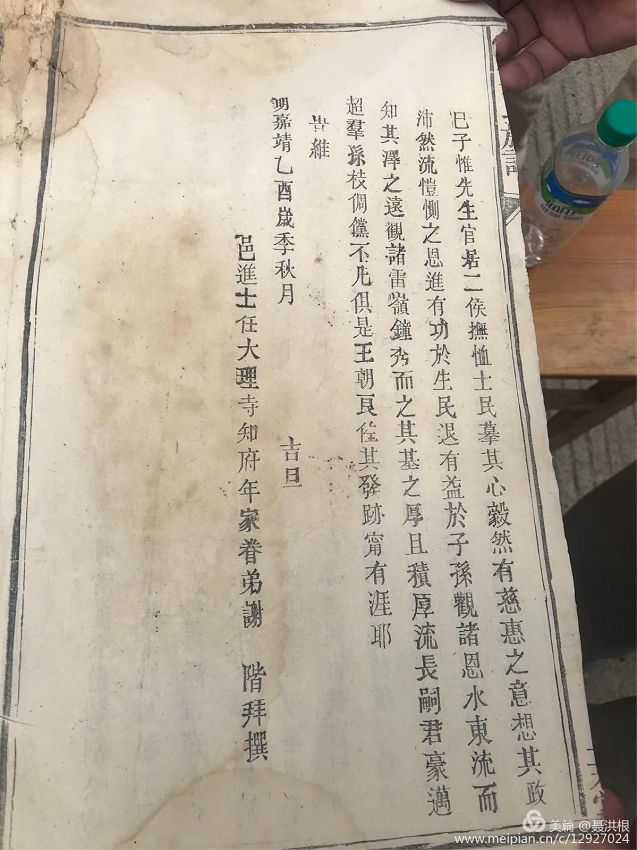 巳子惟先生官居二侯撫恤士民摹其心毅然有慈惠之意想其政
沛然流愷惻之恩進有功於生民退有益於子孫觀諸恩水東流而
知其澤之遠觀諸雷嶺鐘秀而之其基之厚且積厚流長嗣君豪邁
超羣孫枝倜儻不凡俱是王朝良佐其發跡甯有涯耶
旹維
明嘉靖乙酉歲季秋月 吉旦
邑進士任大理寺知府年家眷弟謝 階拜撰
族譜
美篇 @聂洪根
www.meipian.cn/c/12927024